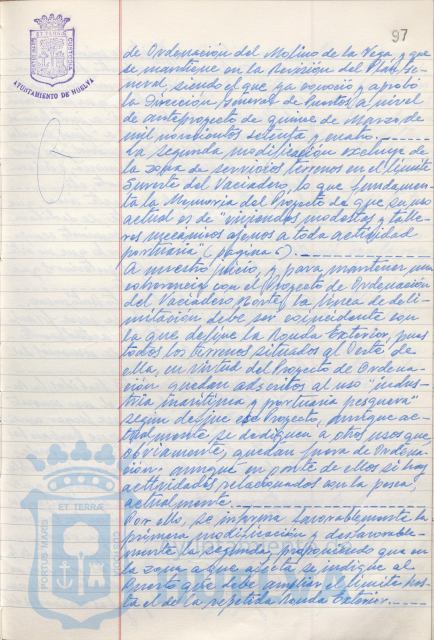 97
AYUNTAMIENTO DE HUELVA
de Ordenación del Molino de la Vega, y que
se mantiene en la Revisión del Plan Ge-
neral, siendo el que ya conoció y aprobó
la Dirección General de Puertos, a nivel
de anteproyecto de quince de Marzo de
mil novecientos setenta y cuatro.
La segunda modificación excluye de
la zona de servicios terrenos en el límite
Sureste del Vaciadero, lo que fundamen-
ta la Memoria del Proyecto de que su uso
actual es de "viviendas modestas y talle-
res mecánicos ajenos a toda actividad
portuaria" (página 6).
A nuestro juicio, y para mantener una
coherencia con el Proyecto de Ordenación
del Vaciadero Norte, la línea de deli-
mitación debe ser coincidente con
la que define la Ronda Exterior, pues
todos los terrenos situados al Oeste de
ella, en virtud del Proyecto de Ordena-
ción quedan adscritos al uso "indus-
tria marítima y portuaria pesquera"
según define ese Proyecto, aunque ac-
tualmente se dediquen a otros usos que,
obviamente, quedan fuera de Ordena-
ción. aunque en parte de ellos si hay
actividades relacionadas con la pesca,
actualmente.
Por ello, se informa favorablemente la
primera modificación y desfavorable-
mente la segunda, proponiendo que en
la zona a que afecta se indique al
Puerto que debe ampliar el límite has-
ta el de la repetida Ronda Exterior.
ET TERRÆ
PORTUS MARIS
CUSTODIA